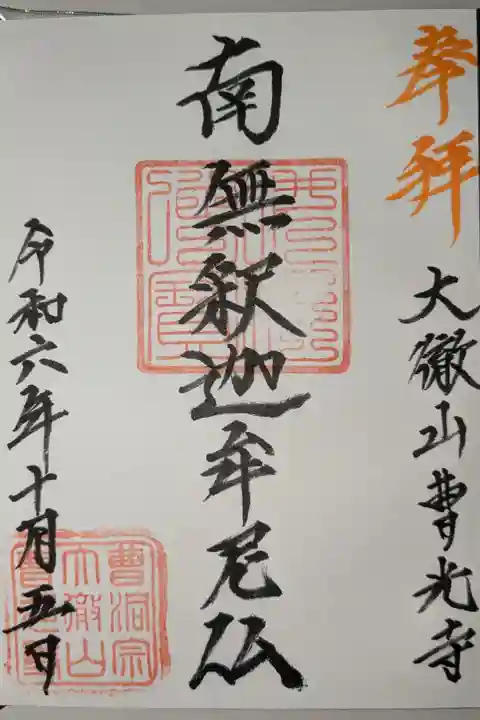 奉拝
大徹山曹光寺
南無釈迦牟尼仏
令和六年十月五日
曹洞宗
大徹山